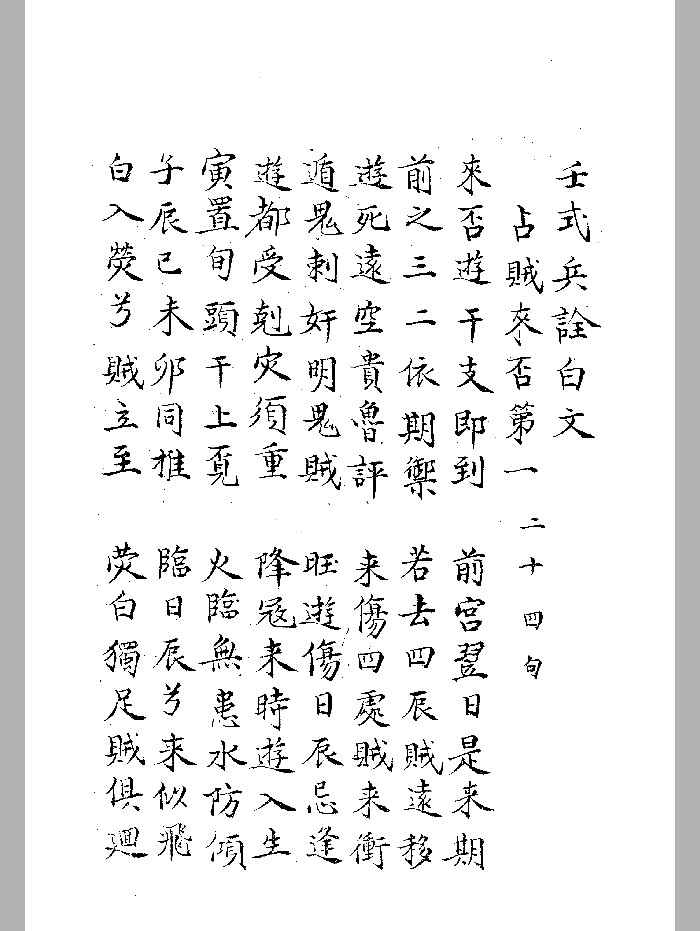 壬式兵詮白文
占賊來否第一 二十四句
來否遊干支即到 前宮翌日是来期
前之三二依期禦 若去四辰賊遠移
遊死遠空貴魯評 来傷四處賊来衝
遁鬼刺奸明鬼賊 旺遊傷日辰忌逢
遊都受剋灾須重 降冦来時遊入生
寅置旬頭干上覔 火臨無患水防傾
子辰巳未卯同推 臨日辰兮来似飛
白入熒兮賊立至 荧白獨足賊俱廻